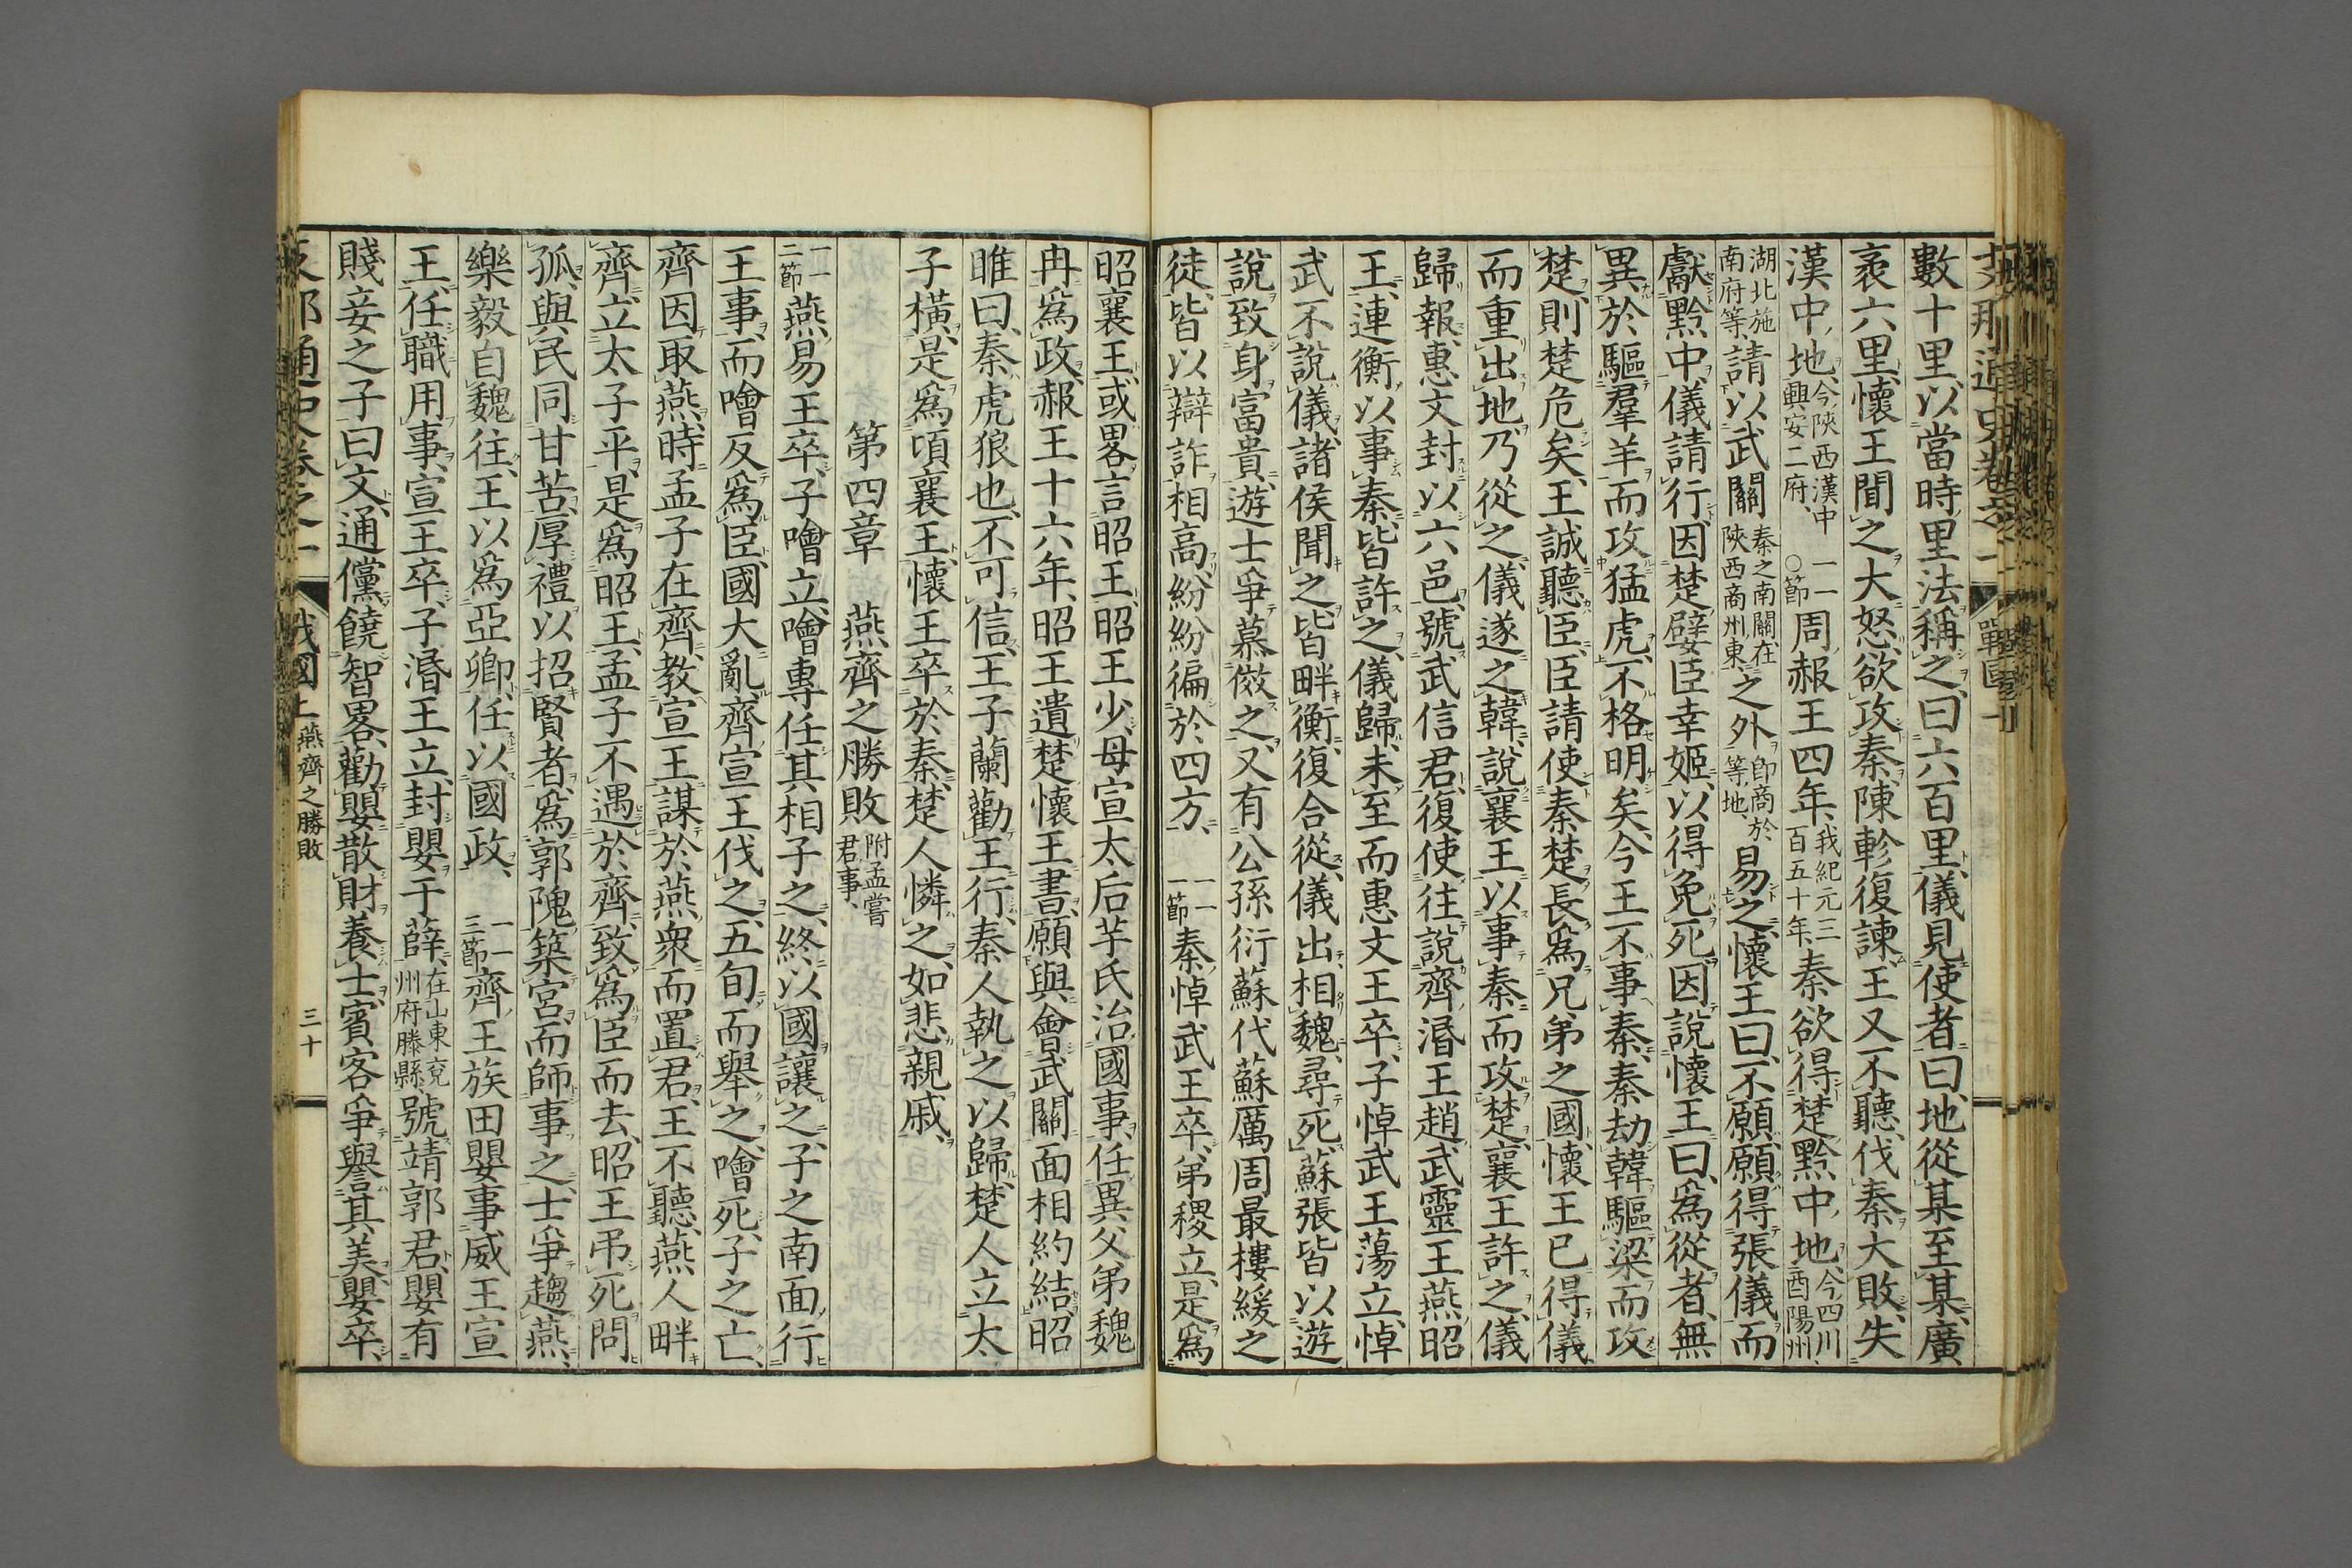 數十里、以當時里法稱之、曰六百里、儀見使者曰、地從某至某、廣
袤六里、懷王聞之大怒、欲攻秦、陳軫復諫、王又不聽、伐秦大敗、失
漢中地、今陝西漢中興安二府、○一一節周赧王四年、我紀元三百五十年、秦欲得楚黔中地、今四川酉陽州
湖北施南府等、請以武關秦之南關、在陝西商州東、之外卽商於等地、易之、懷王曰、不願、願得張儀而
獻黔中、儀請行、因楚嬖臣幸姬、以得免死、因說懷王曰、爲從者、無
異於驅羣羊而攻猛虎、不格明矣、今王不事秦、秦劫韓驅梁而攻
楚、則楚危矣、王誠聽臣、臣請使秦楚長爲兄弟之國、懷王已得儀
而重出地、乃從之、儀遂之韓、說襄王以事秦而攻楚、襄王許之、儀
歸報、惠文封以六邑、號武信君、復使往說齊湣王趙武靈王燕昭
王、連衡以事秦、皆許之、儀歸、未至而惠文王卒、子悼武王蕩立、悼
武不說儀、諸侯聞之、皆畔衡、復合從、儀出相魏、尋死、蘇張皆以遊
說致身富貴、遊士爭慕傚之、又有公孫衍蘇代蘇厲周最樓緩之
徒、皆以辯詐相高、紛紛徧於四方、一一一節秦悼武王卒、弟稷立、是爲
昭襄王、或畧言昭王、昭王少、母宣太后芊氏治國事、任異父弟魏
冉爲政、赧王十六年、昭王遺楚懷王書、願與會武關面相約結、昭
睢曰、秦虎狼也、不可信、王子蘭勸王行、秦人執之以歸、楚人立太
子橫、是爲頃襄王、懷王卒於秦、楚人憐之、如悲親戚、
第四章 燕齊之勝敗附孟嘗君事、
一二節燕易王卒、子噲立、噲專任其相子之、終以國讓之、子之南面行
王事、而噲反爲臣、國大亂、齊宣王伐之、五旬而舉之、噲死、子之亡、
齊因取燕、時孟子在齊、教宣王謀於燕衆而置君、王不聽、燕人畔
齊、立太子平、是爲昭王、孟子不遇於齊、致爲臣而去、昭王弔死問
孤、與民同甘苦、厚禮以招賢者、爲郭隗築宮、而師事之、士爭趨燕、
樂毅自魏往、王以爲亞卿、任以國政、一一三節齊王族田嬰事威王宣
王、任職用事、宣王卒、子湣王立、封嬰于薛、在山東兗州府滕縣、號靖郭君、嬰有
賤妾之子曰文、通儻饒智畧、勸嬰散財養士、賓客爭譽其美、嬰卒、
支那通史卷之一 戰國上 燕齊之勝敗 三十